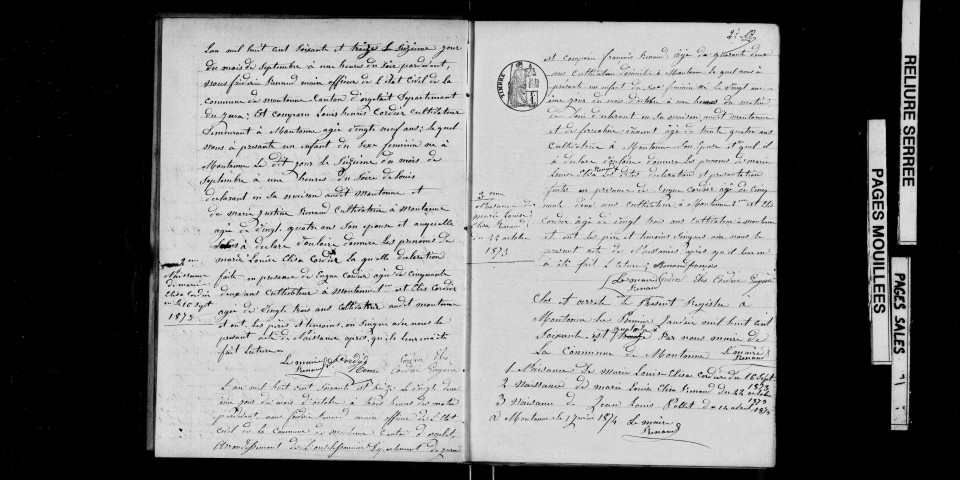 L'an mil huit cent soixante et treize le seizieme jour
du mois de septembre à une heures du soire pardevant,
nous fréderic Renaud maire officier de l'état civil de la
commune de montonne Canton d'orgelet departement
du jura; Est comparu Louis henri Cordier cultivateur
demeurant à Montonne agée vingt neuf ans; le quel
nous à presante un enfant du sexe feminin né à
Montonne le dit jour le seizieme du mois de
septembre à une heures du soire de louis
declarant en sa maison audit montonne et
de marie justine Renaud cultivatrice à montonne
agée de vingt quatre ans son epouse et auquelle
à declare vouloire donner les prenoms de
marie Louise Elisa Cordier la quelle declaration
fait en presance de Cordier agée de cinquante
deux ans cultivateur à Montonne 1er et Elis Cordier
agée de vingt trois ans cultivateur audit montonne
et ont les peres et temoins on signee avec nous le
presant acte de naissance après, qu'ils leur a été
fait lecture
Le maire Cordier Cordier Elis
Renaud Henri Cordier
2 em
Naissance
de marie
Elisa Cordier
le 16 sept
1873
L'an mil huit cent soixante et treize le vingt deux
ieme jour du mois d'octobre à heures du matin
pardevant nous fréderic Renaud maire officier de l'état
civil de la commune de montonne Canton d'orgelet,
arrondissement de Lons-le-saunier departement du jura
2
TIMBRE
est comparu françois Renaud agée de quarante deux
ans cultivateur domicilie à Montonne le quel nous à
presante un enfant du sexe feminin né le vingt deux
ieme jour du mois d'octobre à une heures du matin
de lui declarant en sa maison audit montonne
et de agée de trente quatre ans
cultivatrice à Montonne son epouse et quel il
à declare vouloire donner les prenoms de marie
Louise Elisa les dites declaration et presentation
faite en presance de Cordier agée de cinq
uante deux ans cultivateur à Montonne 1er et Elis
Cordier agée de vingt trois ans cultivateur à montonne
et ont les père et temoins signees avec nous le
presant acte de Naissance après qu'il leur en
à été fait lecture Renaud françois
Le maire Cordier Elis Cordier
Renaud
3 em
Naissance de
marie Louise
Elisa Renaud
du 22 octobre
1873
Clos et arrete le Present Registre à
Montonne le Premier janvier mil huit cent
soixante et quatorze Par nous maire de
La Commune de Montonne Le maire
Renaud
1 Naissance de marie Louise Elisa Cordier du 16 sept
1873
2 Naissance de marie Louise Elisa Renaud du 22 octobre
1873
3 Naissance de Jean Louis Pallet du 14 avril 1873
à Montonne le 1 janvier 1874 Le maire
Renaud
RELIURE SERREE
PAGES MOUILLEES
PAGES SALES